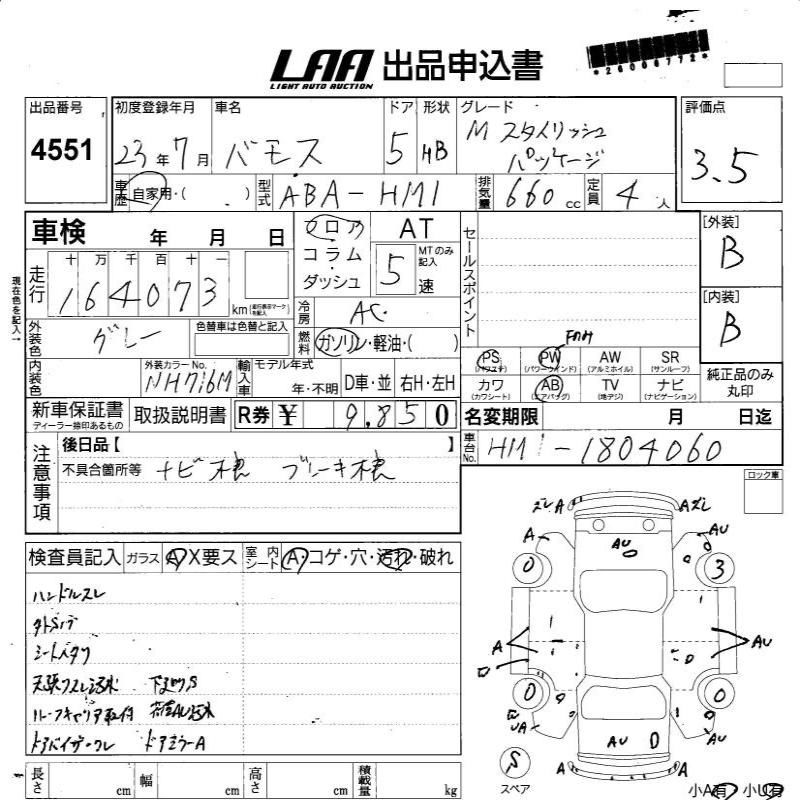 LAA 出品申込書
LIGHT AUTO AUCTION
*26066772*
出品番号 初度登録年月 車名 ドア 形状 グレード 評価点
4551 23年7月 バモス 5 HB M スタイリッシュ
パッケージ 3.5
車歴 自家用・( ) 型式 ABA-HM1 排気量 660 cc 定員 4 人
車検 年 月 日 フロア AT セールスポイント [外装]
コラム MTのみ記入 B
走行 十 万 千 百 十 一 ダッシュ 5 速
164073 km (走行表示マークを記入) [内装]
現在色を記入→ 冷房 AC B
外装色 グレー 色替車は色替と記入 燃料 ガソリン・軽油・( )
Fのみ
PS (パワステ) PW (パワーウインド) AW (アルミホイル) SR (サンルーフ)
内装色 外装カラーNo. NH716M 輸入車 モデル年式 年・不明 D車・並 右H・左H
カワ (カワシート) AB (エアバッグ) TV (地デジ) ナビ (ナビゲーション) 純正品のみ
丸印
新車保証書 取扱説明書 R券 ¥ 9,850 名変期限 月 日迄
ディーラー捺印あるもの
車台No. HM1-1804060
注意事項 後日品【 】
不具合箇所等 ナビ不良 ブレーキ不良
ロック車
検査員記入 ガラス A X要ス 室内シート A・コゲ・穴・汚れ・破れ
ハンドルスレ
外Sィブ
天張
ルーフキャリア取付
ドアバイザーワレ ドアミラーA
ズレ A A ズレ
A AU AU
0 3
A AU
0 0
UA AU AU
A A
S
スペア
長さ cm 幅 cm 高さ cm 積載量 kg
小A有 小U有